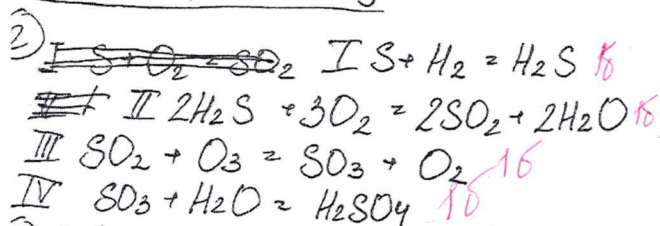 2)
I S + O2 = SO2 I S + H2 = H2S 1б
II 2H2S + 3O2 = 2SO2 + 2H2O 1б
III SO2 + O3 = SO3 + O2 1б
IV SO3 + H2O = H2SO4 1б